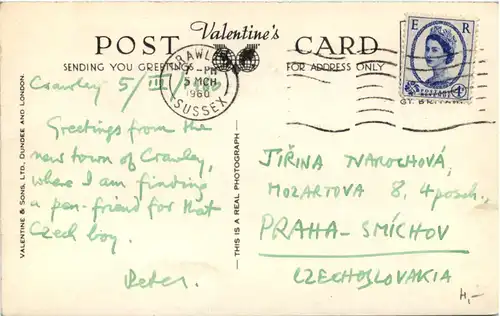 Valentine's
POST CARD
SENDING YOU GREETINGS
FOR ADDRESS ONLY
CRAWLEY
7-PM
5 MCH
1960
SUSSEX
E R
POSTAGE
Crawley 5/III/1960
Greetings from the
new town of Crawley,
where I am finding
a pen-friend for that
Czech boy.
Peter.
VALENTINE & SONS, LTD., DUNDEE AND LONDON.
THIS IS A REAL PHOTOGRAPH
JIŘINA TVAROCHOVÁ,
MOZARTOVA 8, 4 posch.,
PRAHA-SMÍCHOV
CZECHOSLOVAKIA
4,-